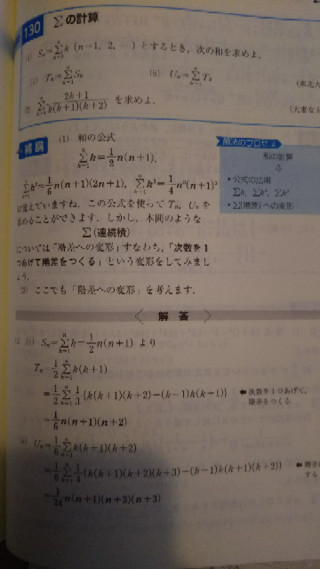 130 Σの計算
(1) Sₙ=Σk (n=1, 2, …) とするとき,次の和を求めよ.
(i) Tₙ=ΣSₖ (ii) Uₙ=ΣTₖ
(2) Σ (2k+1)/(k(k+1)(k+2)) を求めよ.
精講
(1) 和の公式
Σk=1/2 n(n+1),
Σk²=1/6 n(n+1)(2n+1), Σk³=1/4 n²(n+1)²
は覚えていますね。この公式を使って Tₙ, Uₙ を
求めることができます。しかし、本問のような
Σ(連続積)
については「階差への変形」すなわち,「次数を1
つあげて階差をつくる」という変形をしてみまし
ょう.
(2) ここでも「階差への変形」を考えます.
解法のプロセス
和の計算
・公式の活用
Σk, Σk², Σk³
・Σ(階差)への変形
〈 解答 〉
(1) (i) Sₙ=Σk=1/2 n(n+1) より
Tₙ=1/2 Σk(k+1)
=1/2 Σ 1/3 {k(k+1)(k+2)-(k-1)k(k+1)}
⬅ 次数を1つあげて,
階差をつくる
=1/6 n(n+1)(n+2)
(ii) Uₙ=1/6 Σk(k+1)(k+2)
=1/6 Σ 1/4 {k(k+1)(k+2)(k+3)-(k-1)k(k+1)(k+2)}
=1/24 n(n+1)(n+2)(n+3)